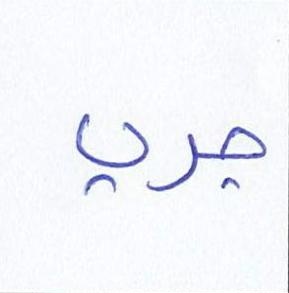 جري